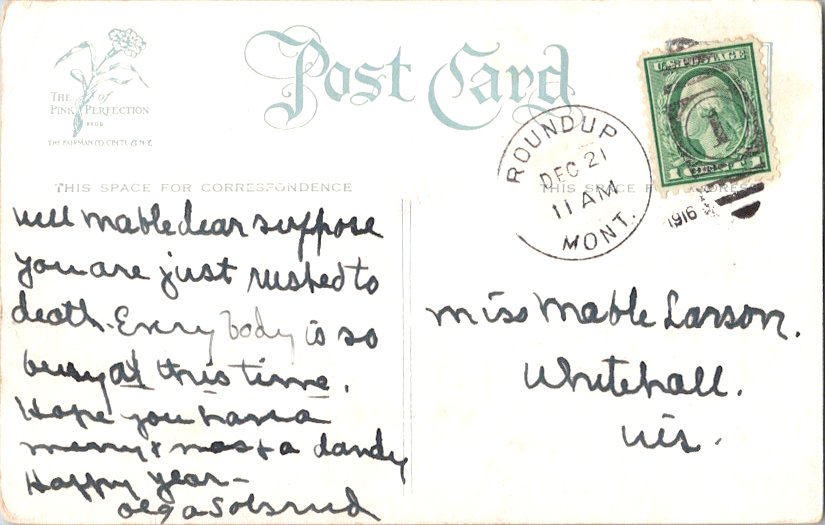 Post Card
THE of
PINK PERFECTION
THE FAIRMAN CO. CIN'TI. & N.Y.
ROUNDUP
DEC 21
11 AM
MONT.
1916
1
THIS SPACE FOR CORRESPONDENCE
THIS SPACE F
well Mable dear suppose
you are just rushed to
death. Every body is so
busy at this time.
Hope you have a
merry x mas & a dandy
Happy year —
Olga Solsrud
Miss Mable Larson.
Whitehall.
Wis.